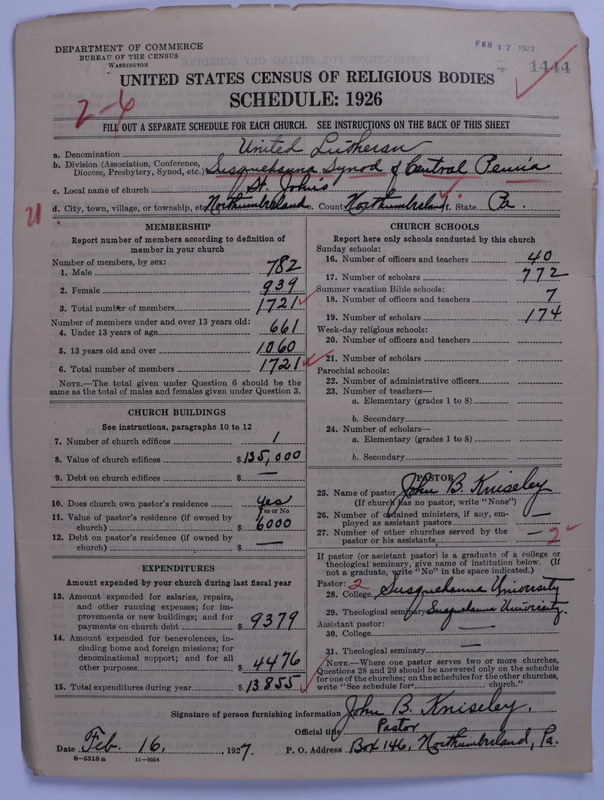 DEPARTMENT OF COMMERCE
BUREAU OF THE CENSUS
WASHINGTON
FEB 17 1927
1444
UNITED STATES CENSUS OF RELIGIOUS BODIES
SCHEDULE: 1926
2-6
FILL OUT A SEPARATE SCHEDULE FOR EACH CHURCH. SEE INSTRUCTIONS ON THE BACK OF THIS SHEET
a. Denomination United Lutheran
b. Division (Association, Conference, Diocese, Presbytery, Synod, etc.) Susquehanna Synod of Central Penn'a
c. Local name of church St. Johns
d. City, town, village, or township, etc. Northumberland e. County Northumberland f. State Pa.
MEMBERSHIP
Report number of members according to definition of
member in your church
Number of members, by sex:
1. Male 782
2. Female 939
3. Total number of members 1721
Number of members under and over 13 years old:
4. Under 13 years of age 661
5. 13 years old and over 1060
6. Total number of members 1721
NOTE.—The total given under Question 6 should be
same as the total of males and females given under Question 3.
CHURCH BUILDINGS
See instructions, paragraphs 10 to 12
7. Number of church edifices 1
8. Value of church edifices $135,000
9. Debt on church edifices $ —
10. Does church own pastor's residence yes
Yes or No
11. Value of pastor's residence (if owned by
church) $ 6000
12. Debt on pastor's residence (if owned by
church) $ —
EXPENDITURES
Amount expended by your church during last fiscal year
13. Amount expended for salaries, repairs,
and other running expenses; for im-
provements or new buildings; and for
payments on church debt $ 9379
14. Amount expended for benevolences, in-
cluding home and foreign missions; for
denominational support; and for all
other purposes $ 4476
15. Total expenditures during year $ 13855
CHURCH SCHOOLS
Report here only schools conducted by this church
Sunday schools:
16. Number of officers and teachers 40
17. Number of scholars 772
Summer vacation Bible schools:
18. Number of officers and teachers 7
19. Number of scholars 174
Week-day religious schools:
20. Number of officers and teachers
21. Number of scholars
Parochial schools:
22. Number of administrative officers
23. Number of teachers—
a. Elementary (grades 1 to 8)
b. Secondary
24. Number of scholars—
a. Elementary (grades 1 to 8)
b. Secondary
PASTOR
25. Name of pastor John B. Kniseley
(If church has no pastor, write "None")
26. Number of ordained ministers, if any, em-
ployed as assistant pastors —
27. Number of other churches served by the
pastor or his assistants — 2
If pastor (or assistant pastor) is a graduate of a college or
theological seminary, give name of institution below. (If
not a graduate, write "No" in the space indicated.)
Pastor: 2
28. College Susquehanna University
29. Theological seminary Susquehanna University.
Assistant pastor:
30. College —
31. Theological seminary —
NOTE.—Where one pastor serves two or more churches,
Questions 28 and 29 should be answered only on the schedule
for one of the churches; on the schedules for the other churches,
write "See schedule for church."
Signature of person furnishing information John B. Kniseley.
Official title Pastor
Date Feb. 16, 1927. P. O. Address Box 146, Northumberland, Pa.
8—5318 a 11—9064